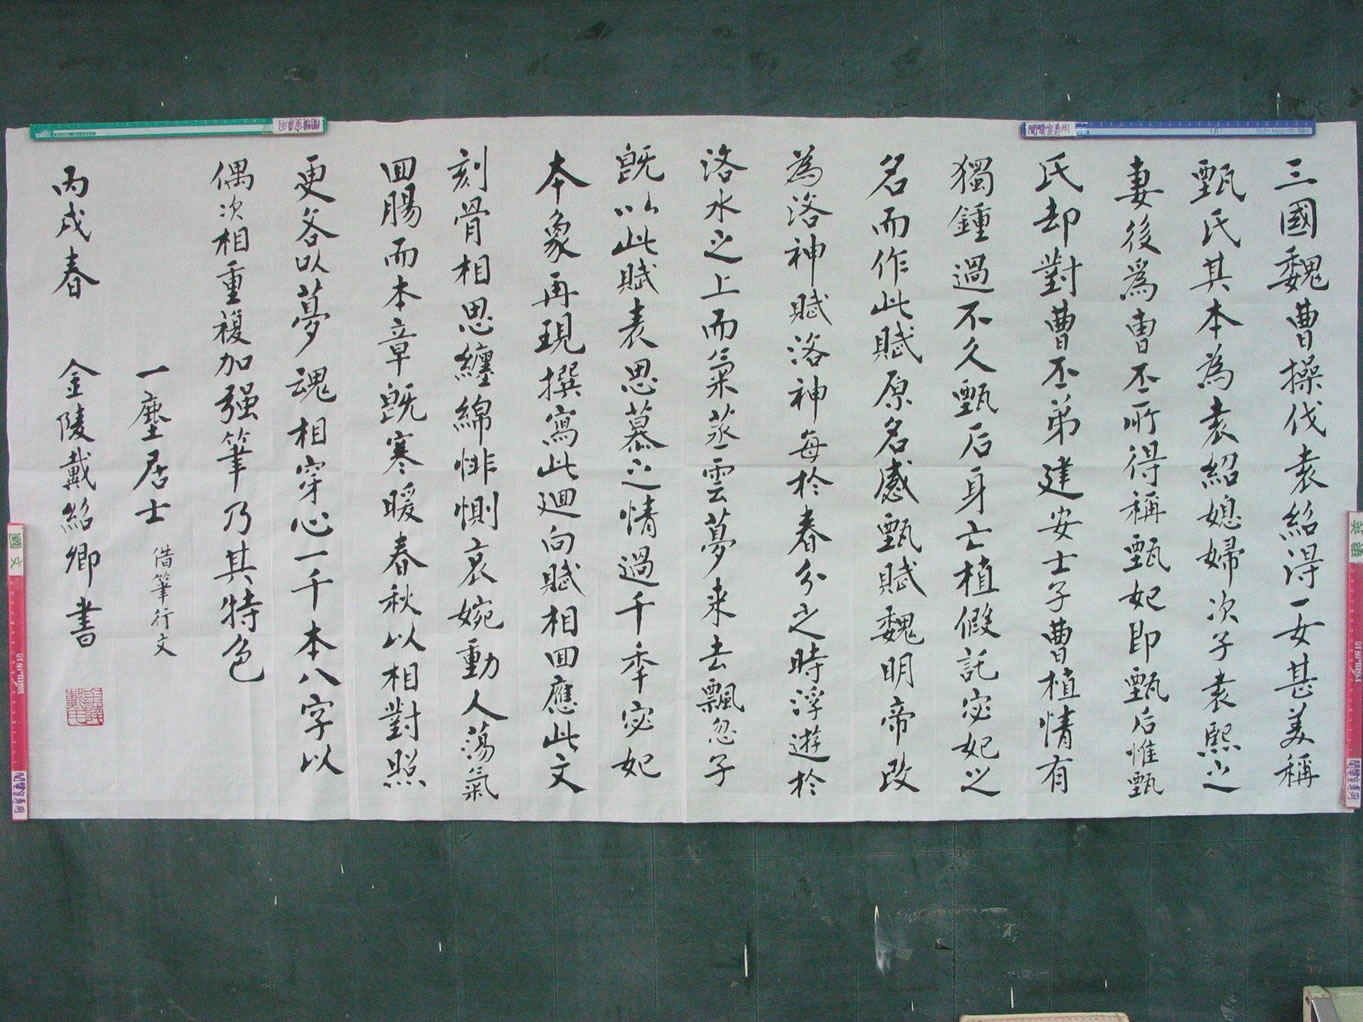 三國魏曹操伐袁紹得一女甚美稱
甄氏其本為袁紹媳婦次子袁熙之
妻後爲曹丕所得稱甄妃即甄后惟甄
氏却對曹丕弟建安士子曹植情有
獨鍾過不久甄后身亡植假託宓妃之
名而作此賦原名感甄賦魏明帝改
為洛神賦洛神每於春分之時浮遊於
洛水之上而氣蒸雲夢来去飄忽子
既以此賦表思慕之情過千季宓妃
本象再現撰寫此廻向賦相回應此文
刻骨相思纏綿悱惻哀婉動人蕩氣
回腸而本章既寒暖春秋以相對照
更各以夢魂相穿心一千本八字以
偶次相重複加强筆乃其特色
一塵居士 借筆行文
丙戌春 金陵戴紹卿書